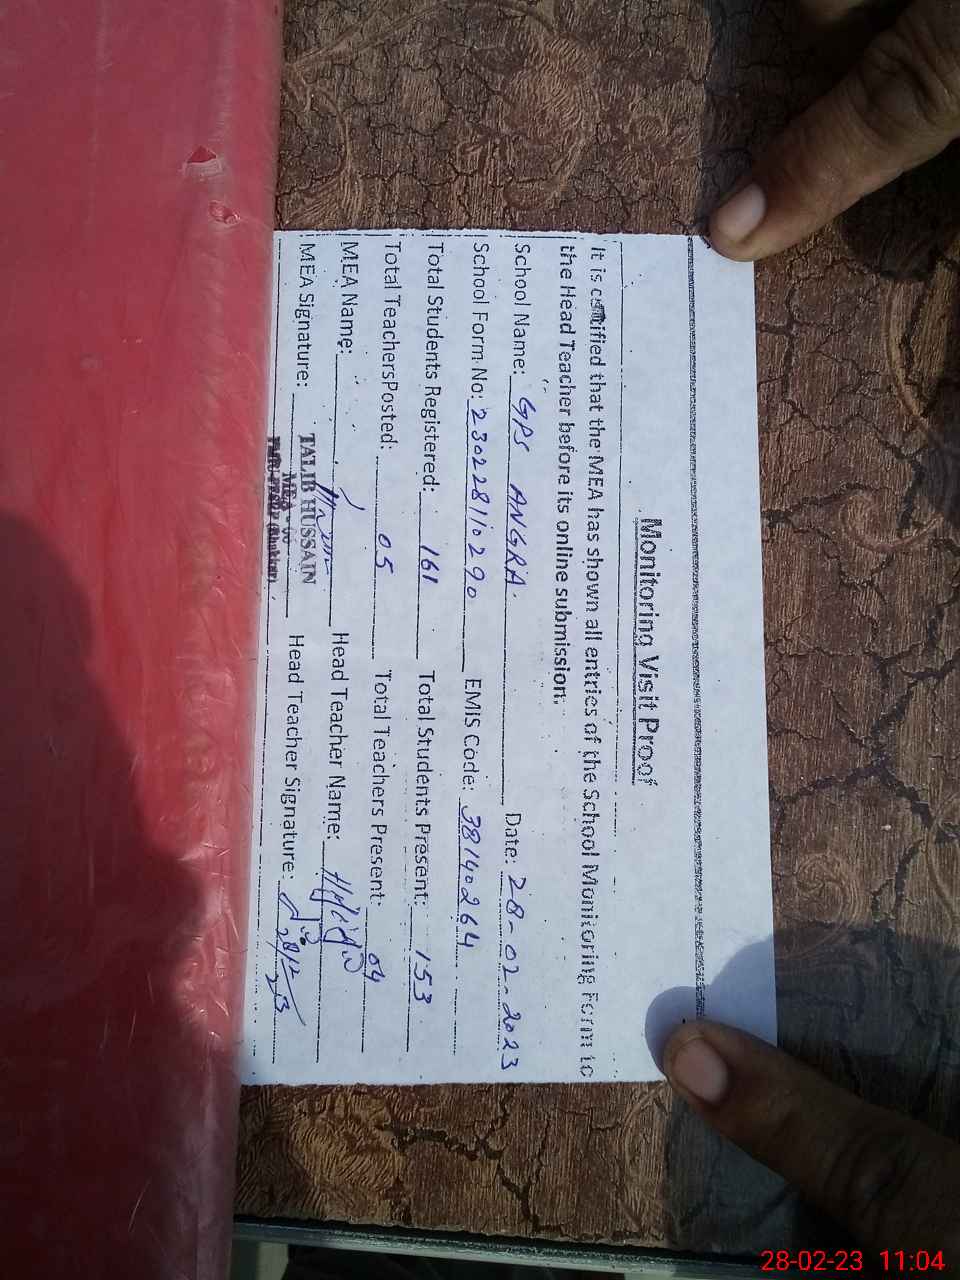 Monitoring Visit Proof
It is certified that the MEA has shown all entries of the School Monitoring Form to
the Head Teacher before its online submission.
School Name: GPS ANGRA. Date: 28-02-2023
School Form No: 23022811 0290 EMIS Code: 38140264
Total Students Registered: 161 Total Students Present: 153
Total TeachersPosted: 05 Total Teachers Present: 04
MEA Name: Head Teacher Name:
MEA Signature: Head Teacher Signature:
TALIB HUSSAIN
MEA
28-02-23 11:04